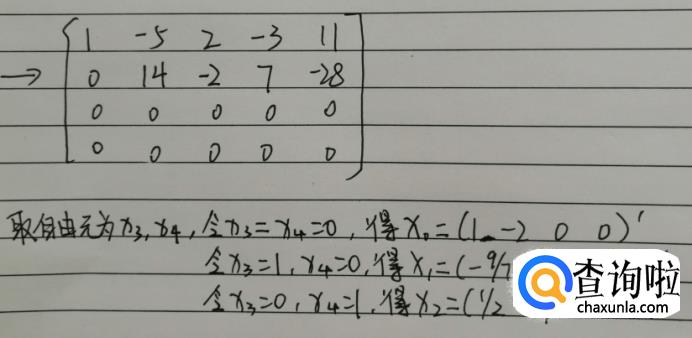 1 -5 2 -3 11
→ 0 14 -2 7 -28
0 0 0 0 0
0 0 0 0 0
取自由元为x3,x4,令x3=x4=0,得X0=(1 -2 0 0)'
令x3=1,x4=0,得X1=(-9/7
令x3=0,x4=1,得X2=(1/2
查询啦
chaxunla.com